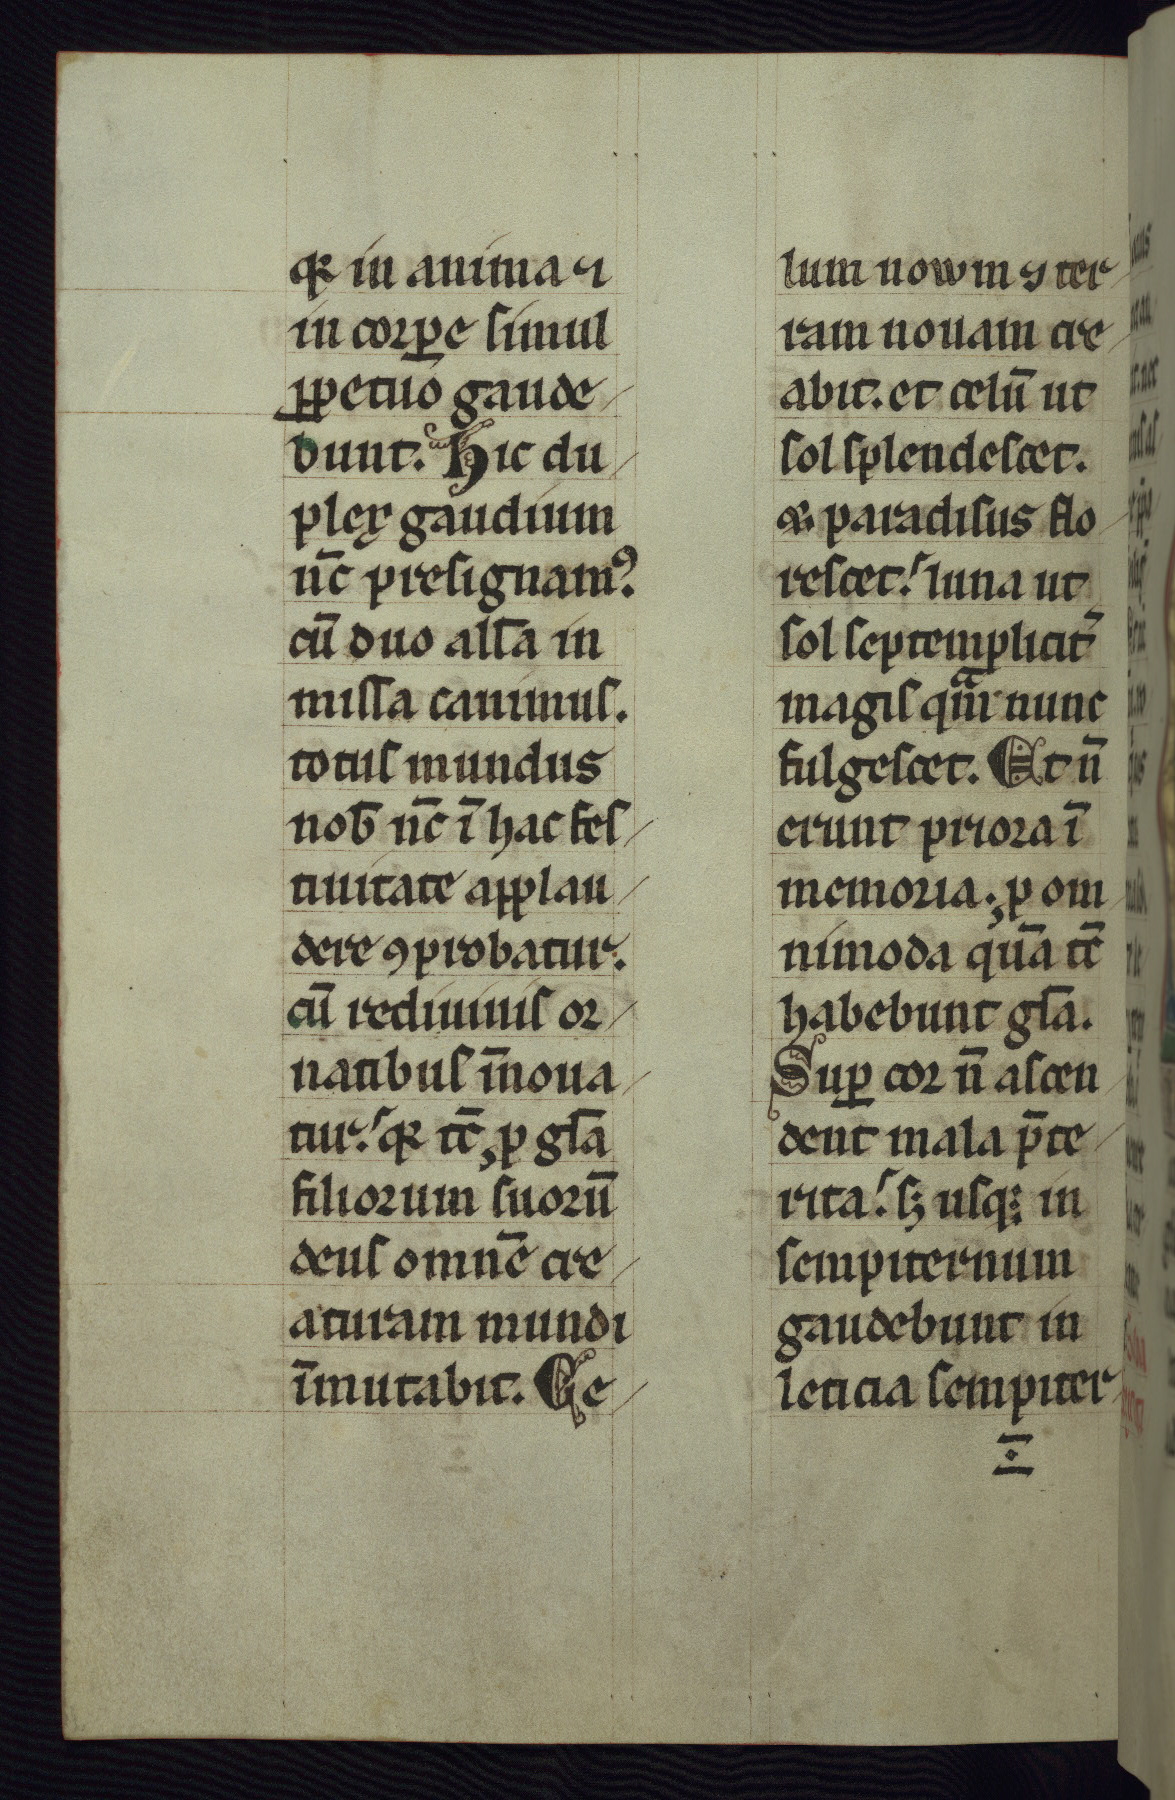 qꝛ in anima ⁊
in corꝑe simul
ꝑpetuo gaude
bunt. Hic du
plex gaudium
nc̄ presignamꝰ.
cū duo all̄a in
missa canimus.
totus mundus
nob̄ nc̄ ī hac fes
tiuitate applau
dere ꝯprobatur.
cū rediuiuis or
natibus īnoua
tur. qꝛ tc̄ ꝓ gl̄a
filiorum suorū
deus omnē cre
aturam mundi
īmutabit. Ce
lum nowm ⁊ ter
ram nouam cre
abit. et celū ut
sol splendescet.
paradisus flo
rescet. luna ut
sol septempliciť
magis qᵃ̄m nunc
fulgescet. Et n̄
erunt priora ī
memoria. ꝓ om
nimoda quā tc̄
habebunt gl̄a.
Suꝑ cor n̄ ascen
dent mala p̄te
rita. sꝫ usqꝫ in
sempiternum
gaudebunt in
leticia sempiter